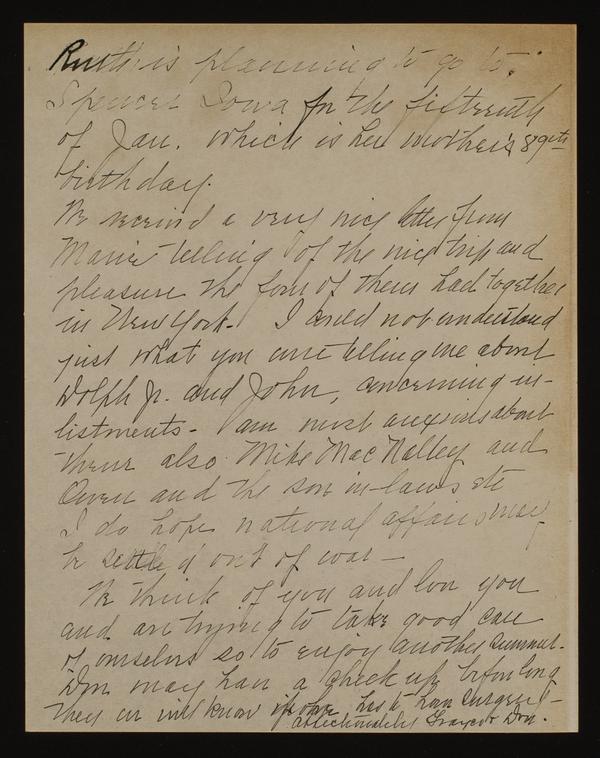 Ruth is planning to go to
Spencer Iowa for the fifteenth
of Jan. which is her mother's 89th
birthday.
We received a very nice letter from
Marie telling of the nice trip and
pleasure the four of them had together
in New York. I could not understand
just what you were telling me about
Dolph Jr. and John, concerning in-
listments. I am most anxious about
them also Mike MacNalley and
Owen and the son in-laws etc
I do hope national affairs may
be settled out of war—
We think of you and love you
and are trying to take good care
of ourselves so to enjoy another summer.
Don may have a check up before long
then we will know if one has to have surgery—
Affectionately Grayce & Don.